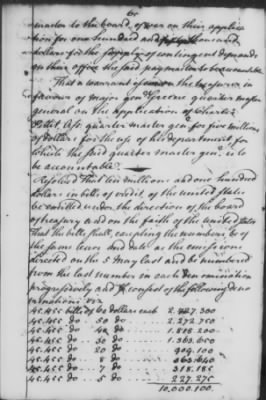 master to the board of war on their applica
tion for one hundred and fifty thousand
dollars for the supply of contingent demands
on their office the said paymaster to be accountable.
That a warrant issue on the treasurer in
favour of major gen^l greene quarter master
general on the application of Charles
Pettit ass^t quarter master gen^l for five millions
of dollars for the use of his department for
which the said quarter master gen^l is to
be accountable.
Resolved That ten millions and one hundred
dollars in bills of credit of the united states
be emitted under the direction of the board
of treasury and on the faith of the united states
That the bills shall, excepting the numbers, be of
the same tenor and date as the emissions
directed on the 5 May last and be numbered
from the last number in each denomination
progressively and consist of the following deno
minations viz
45,455 bills of 60 dollars each 2.727.300
45.455 do 50 do 2.272.750
45.455 do 40 do 1.818.200
45.455 do 30 do 1.363.650
45.455 do 20 do 909.100
45.455 do 8 do 363.640
45.455 do 7 do 318.185
45.455 do 5 do 227.275
10,000.100